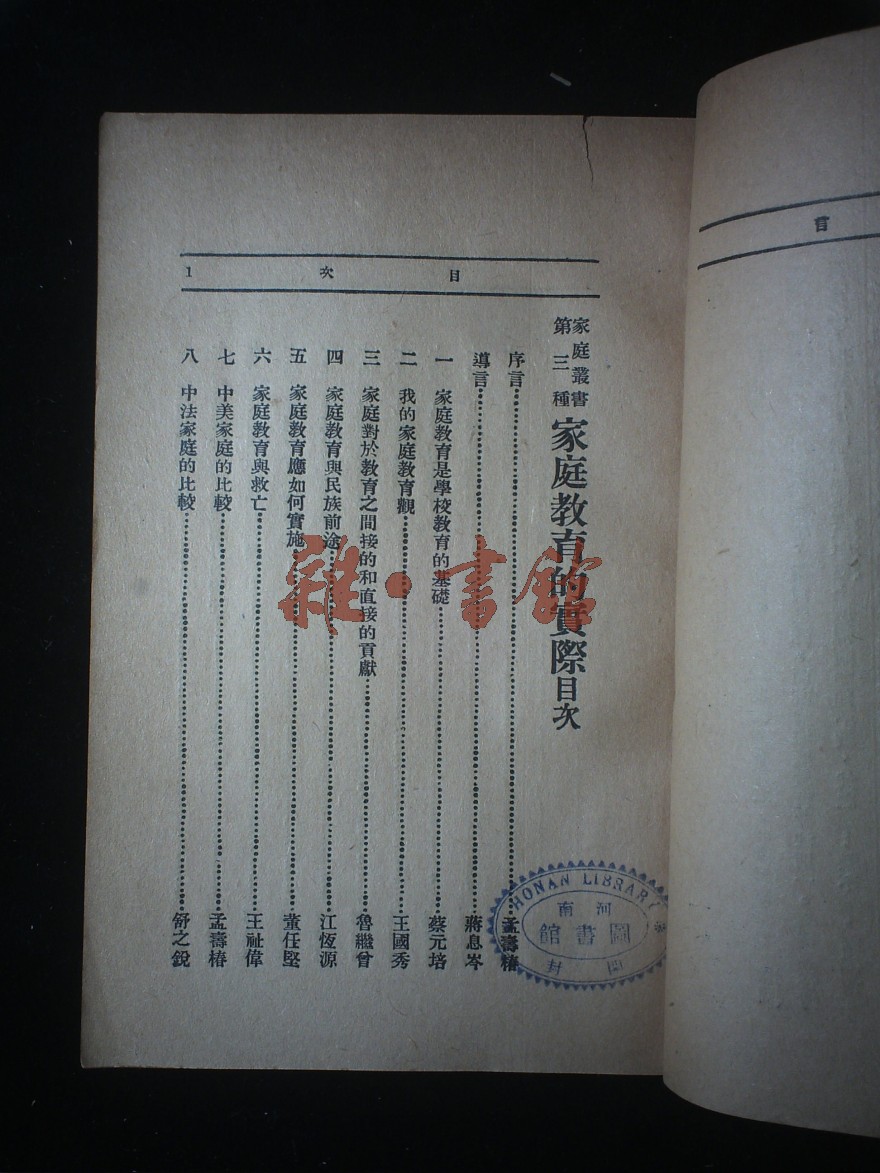 目次 1
家庭叢書
第三種
家庭教育的實際目次
序言 孟壽椿
導言 蔣息岑
一 家庭教育是學校教育的基礎 蔡元培
二 我的家庭教育觀 王國秀
三 家庭對於教育之間接的和直接的貢獻 魯繼曾
四 家庭教育與民族前途 江恆源
五 家庭教育應如何實施 董任堅
六 家庭教育與救亡 王祉偉
七 中美家庭的比較 孟壽椿
八 中法家庭的比較 舒之銳
雜·書館
HONAN LIBRARY
河南
圖書館
開封
言